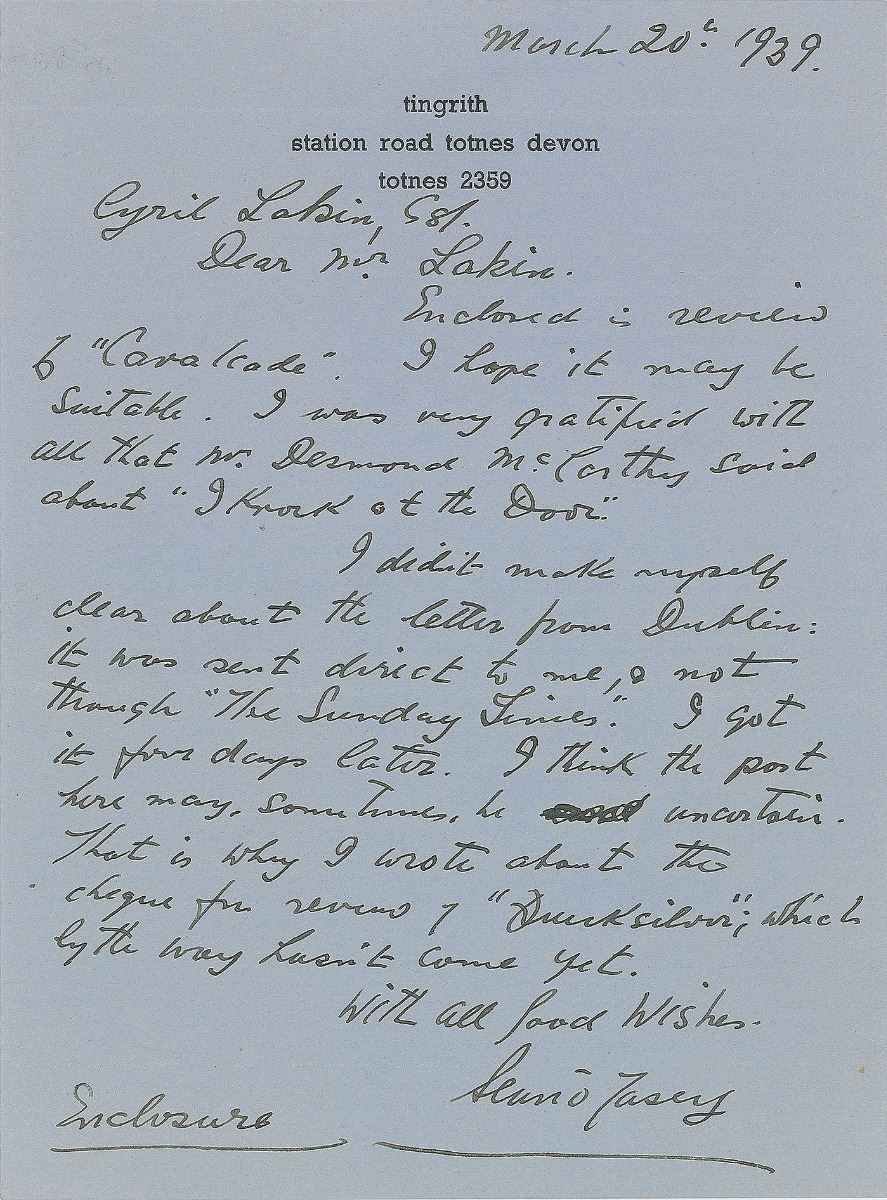 March 20th 1939.
tingrith
station road totnes devon
totnes 2359
Cyril Lakin, Esq.
Dear Mr. Lakin.
Enclosed is review
of "Cavalcade". I hope it may be
suitable. I was very gratified with
all that Mr. Desmond McCarthy said
about "I Knock at the Door."
I didn't make myself
clear about the letter from Dublin:
it was sent direct to me, & not
through "The Sunday Times." I got
it four days later. I think the post
here may, sometimes, be uncertain.
That is why I wrote about the
cheque for review of "Quicksilver"; which
by the way hasn't come yet.
With all Good Wishes.
Sean O'Casey
Enclosure